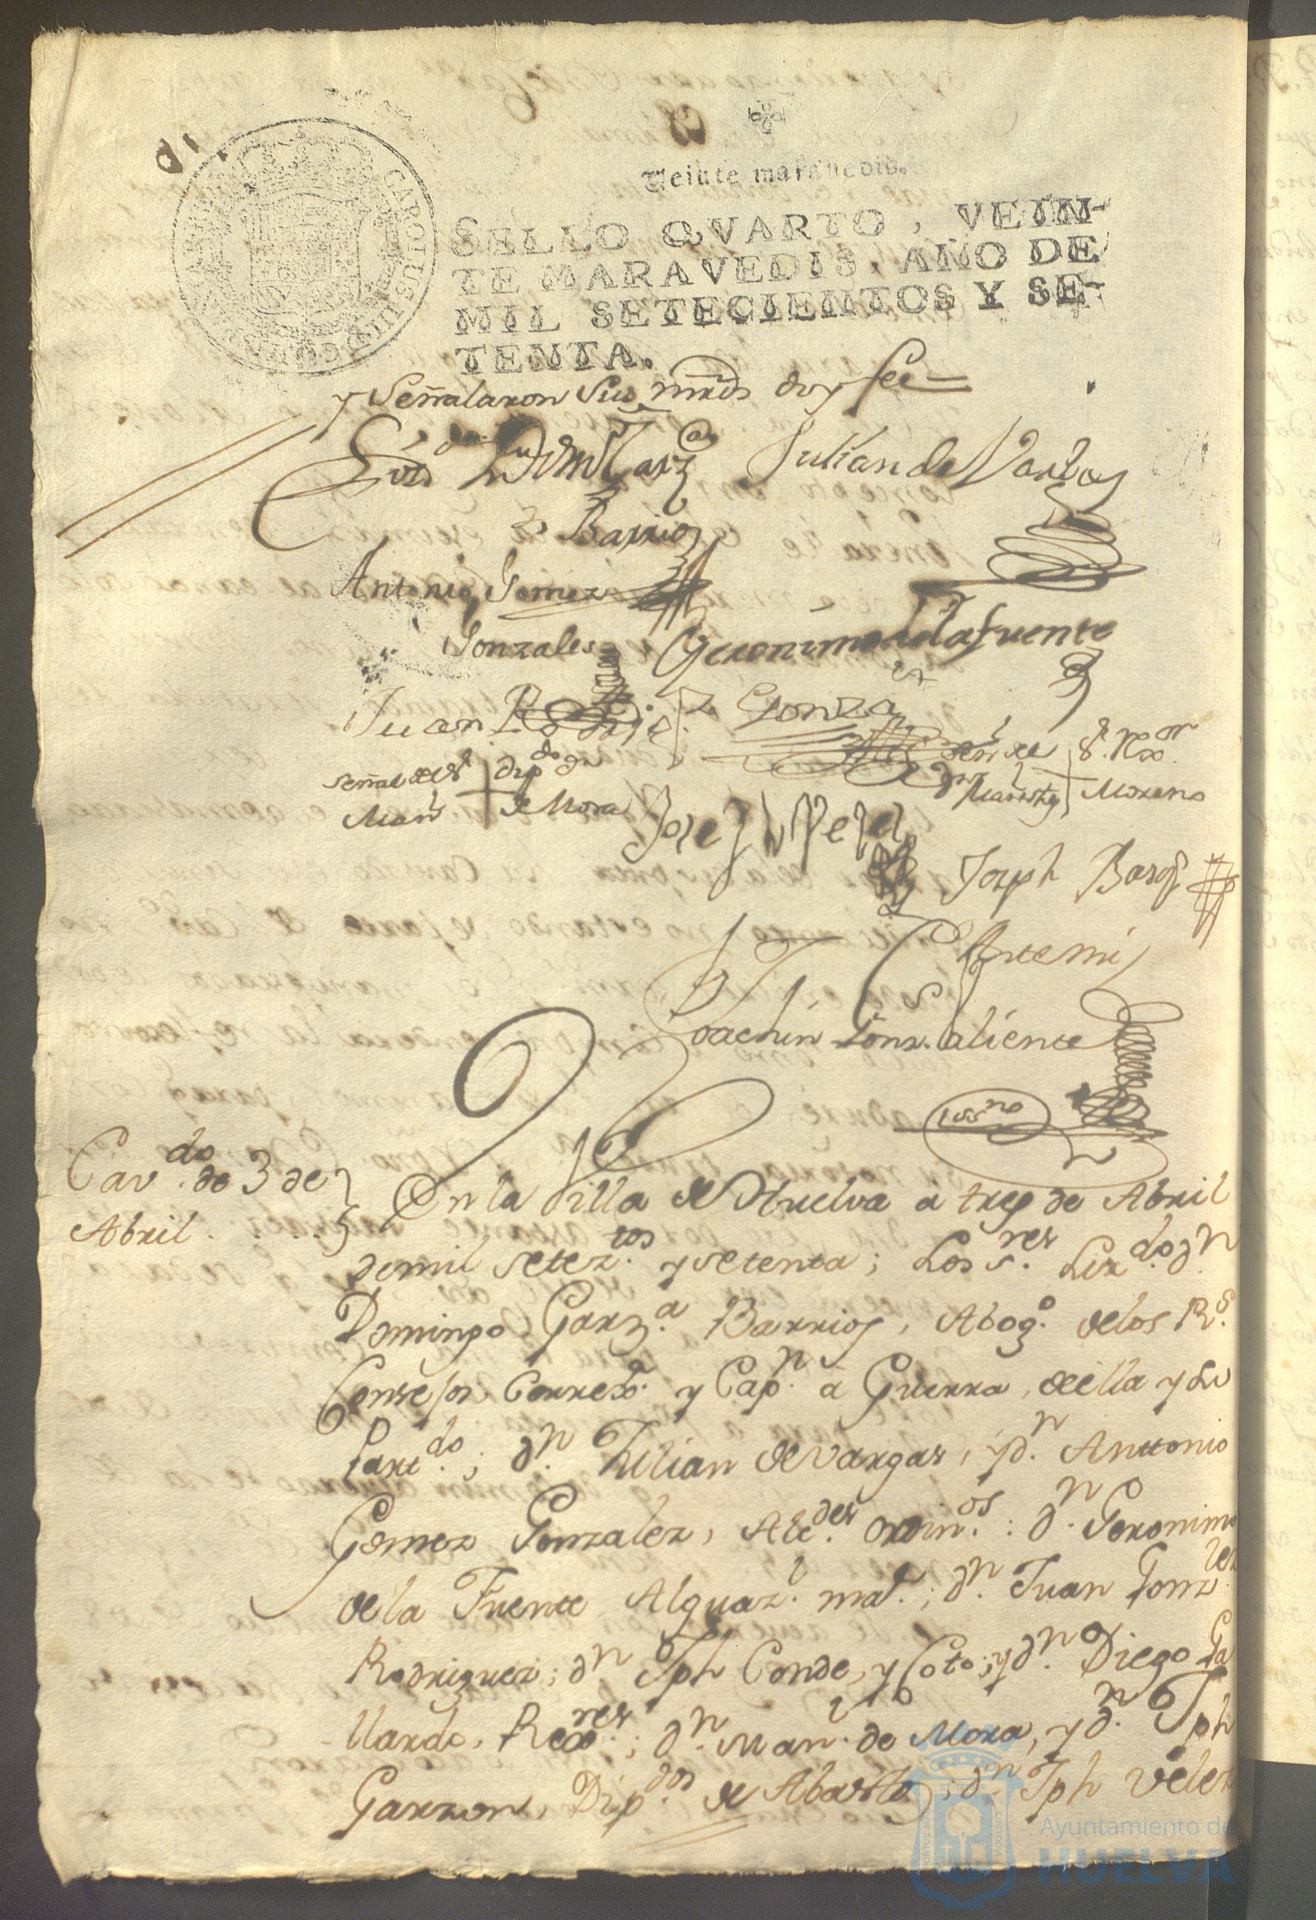 Veinte maravedis.
SELLO QVARTO, VEIN-
TE MARAVEDIS, AÑO DE
MIL SETECIENTOS Y SE-
TENTA.
CAROLUS III D G
y Señalaron Sus mrds doy fee =
Lizdo Dn Domo Garza Julian de Vargas
Barrios
Antonio Gomez
Gonzales Geronimo de la fuente
Juan Rodrigz Gonza
Señal del Sr + Dipdo dn Señal del Sr Rexor
Manl de Mora dn + Moreno
Josef Velez
Joseph Garzn
Ante mi
Joachin Gonz. aliente
essno
Cavdo de 3 de
Abril
En la Villa de Huelva a tres de Abril
de mil seteztos y setenta; Los Sres Lizdo Dn
Domingo Garza Barrios, Abogo de los Rs
Consejos, Correxr y Capn a Guerra, de ella y su
Partdo; dn Julian de Vargas, y dn Anttonio
Gomez Gonzalez, Alcdes ordinos: dn Geronimo
de la Fuente Alguazl mar; dn Juan Gonzlez
Rodriguez; dn Jph Conde, y Coto; y dn Diego Ga
llardo, Rexres; dn Manl de Mora, y dn Jph
Garzon, Dipdos de Abasto; dn Jph Velez
Ayuntamiento de
HUELVA